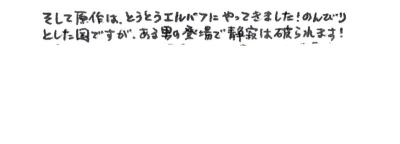 そして原作は、とうとうエルバフにやってきました!のんびり
とした国ですが、ある男の登場で静寂は破られます!